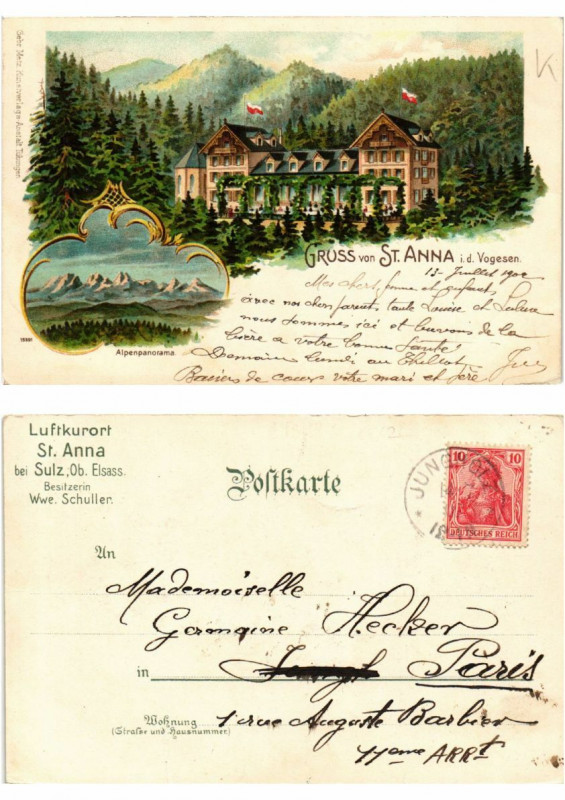 Gebr. Metz, Kunstverlags-Anstalt Tübingen
GRUSS von ST. ANNA i. d. Vogesen.
13 Juillet 1902
Mes chers, femme et enfant,
avec nos chers parents, tante Louise et
nous sommes ici et buvons de la
bière à votre bonne santé
Demain lundi au Thillot.
Baisers de cœur votre mari et père
Alpenpanorama.
Luftkurort
St. Anna
bei Sulz, Ob. Elsass.
Besitzerin
Wwe. Schuller.
Postkarte
10 10
DEUTSCHES REICH
An
Mademoiselle
Germaine Hecker
in Paris
Wohnung 1 rue Auguste Barbier
(Straße und Hausnummer)
11eme ARRt